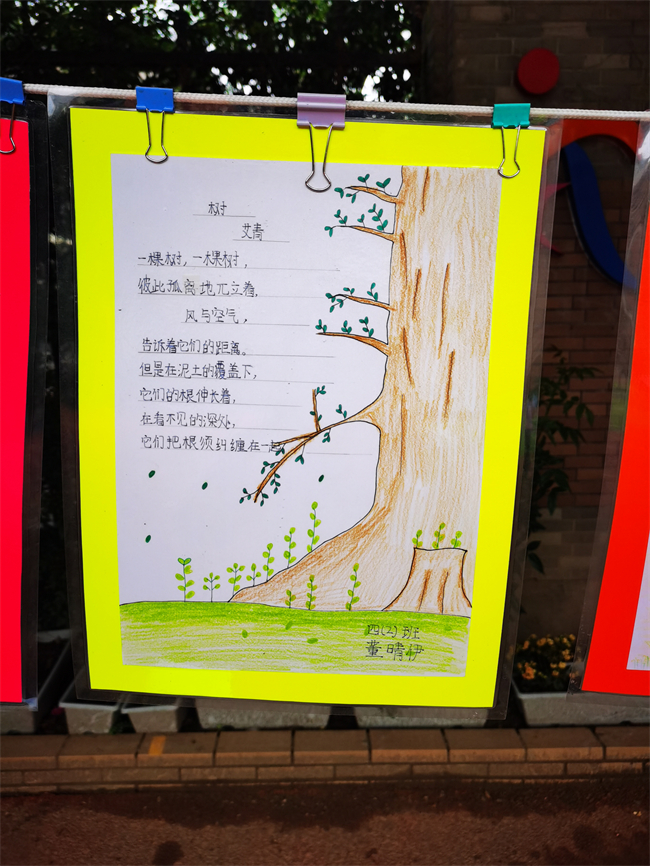 树
艾青
一棵树，一棵树，
彼此孤离地兀立着，
风与空气，
告诉着它们的距离。
但是在泥土的覆盖下，
它们的根伸长着，
在看不见的深处，
它们把根须纠缠在一起
四(2)班
董晴伊